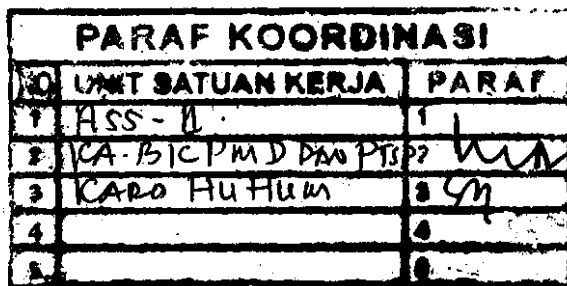 PARAF KOORDINASI
NO UNIT SATUAN KERJA PARAF
1 ASS-II. 1
2 KA. BKPMD DAN PTSP 2
3 KARO HUKUM 3
4 4
5